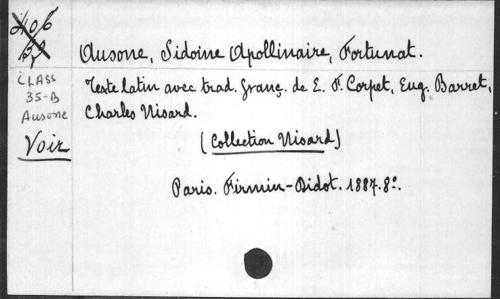 Ausone, Sidoine Apollinaire, Fortunat.
Texte latin avec trad. franç. de E. F. Corpet, Eug. Barret,
Charles Nisard.
(Collection Nisard)
Paris. Firmin-Didot. 1887. 8°.
406
CLASS
35-B
Ausone
Voir